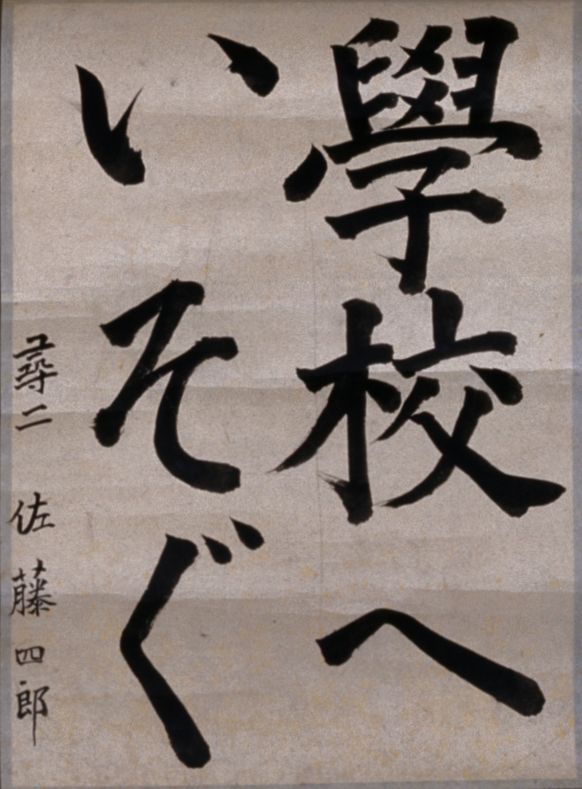 學校へ
いそぐ
尋二 佐藤四郎